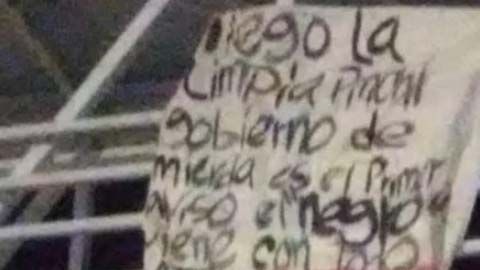 llego la
Limpia Pinchi
gobierno de
mierda es el Primer
aviso el negro
viene con todo